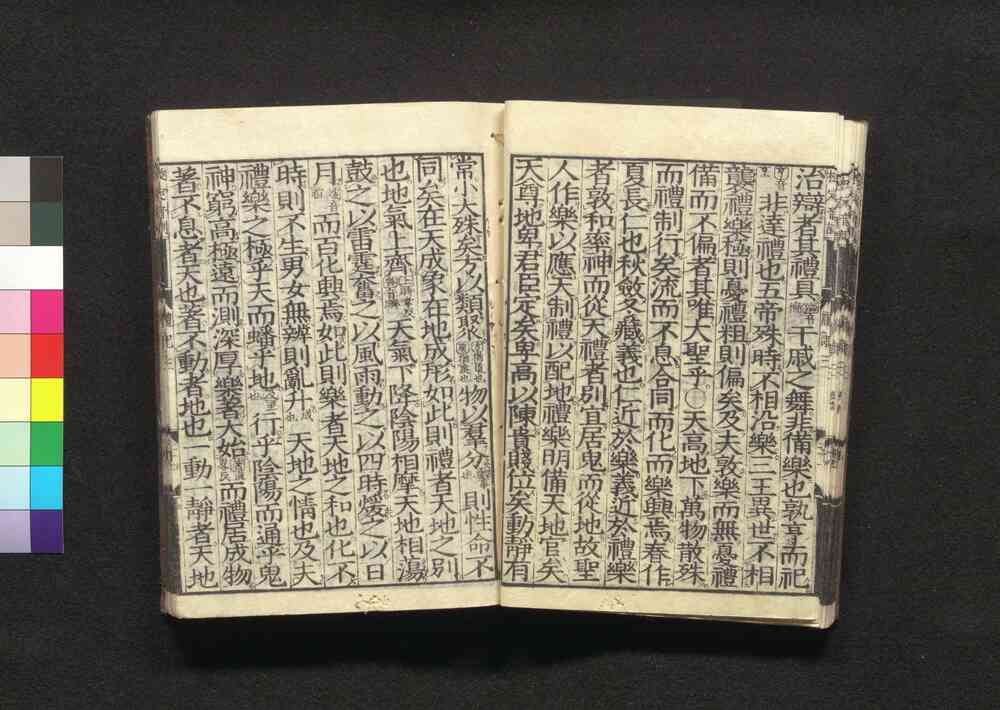 治辯者其禮具干戚之舞非備樂也孰亨而祀
非達禮也五帝殊時不相沿樂三王異世不相
襲禮樂極則憂禮粗則偏矣及夫敦樂而無憂禮
備而不偏者其唯大聖乎〇天高地下萬物散殊
而禮制行矣流而不息合同而化而樂興焉春作
夏長仁也秋斂冬藏義也仁近於樂義近於禮樂
者敦和率神而從天禮者別宜居鬼而從地故聖
人作樂以應天制禮以配地禮樂明備天地官矣
天尊地卑君臣定矣卑高以陳貴賤位矣動靜有
常小大殊矣方以類聚物以羣分則性命不
同矣在天成象在地成形如此則禮者天地之別
也地氣上齊天氣下降陰陽相摩天地相蕩
鼓之以雷霆奮之以風雨動之以四時煖之以日
月而百化興焉如此則樂者天地之和也化不
時則不生男女無辨則亂升天地之情也及夫
禮樂之極乎天而蟠乎地行乎陰陽而通乎鬼
神窮高極遠而測深厚樂著大始而禮居成物
著不息者天也著不動者地也一動一靜者天地